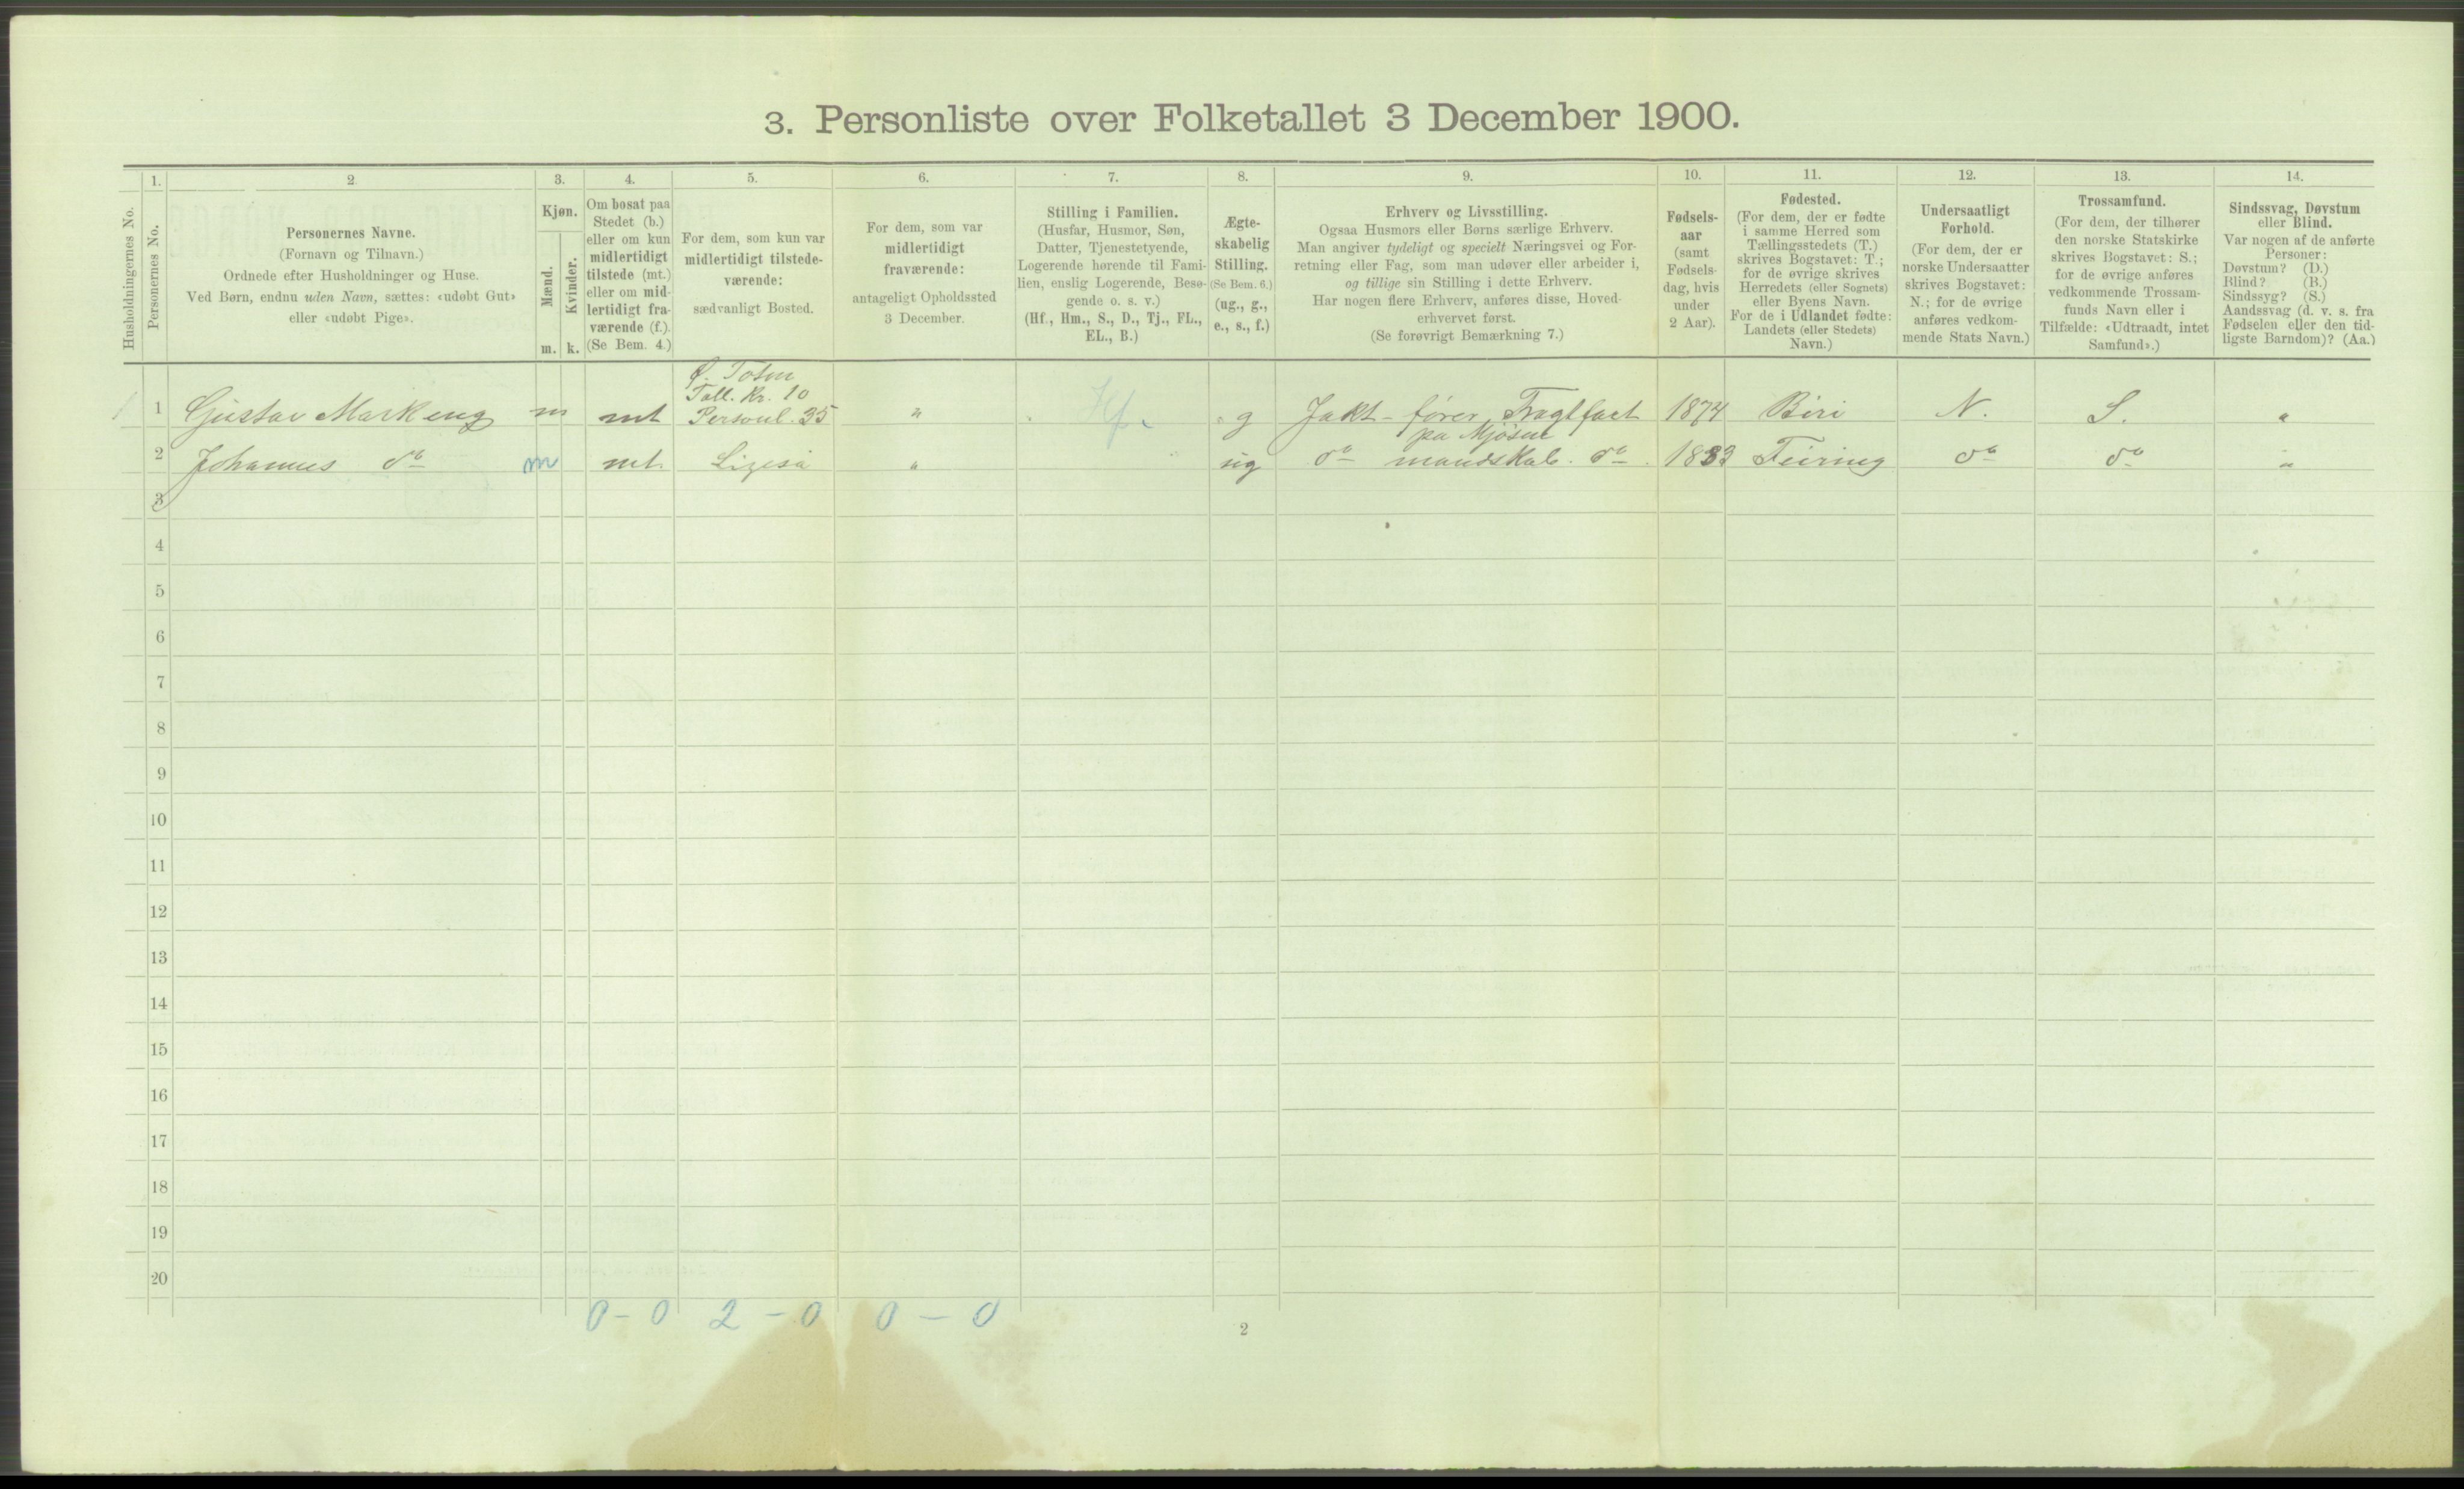 3. Personliste over Folketallet 3 December 1900.
1. 2. 3. 4. 5. 6. 7. 8. 9. 10. 11. 12. 13. 14.
Husholdningernes No.
Personernes No.
Personernes Navne.
(Fornavn og Tilnavn.)
Ordnede efter Husholdninger og Huse.
Ved Børn, endnu uden Navn, sættes: «udøbt Gut»
eller «udøbt Pige».
Kjøn.
Mænd.
Kvinder.
m. k.
Om bosat paa
Stedet (b.)
eller om kun
midlertidigt
tilstede (mt.)
eller om mid-
lertidigt fra-
værende (f.).
(Se Bem. 4.)
For dem, som kun var
midlertidigt tilstede-
værende:
sædvanligt Bosted.
For dem, som var
midlertidigt
fraværende:
antageligt Opholdssted
3 December.
Stilling i Familien.
(Husfar, Husmor, Søn,
Datter, Tjenestetyende,
Logerende hørende til Fami-
lien, enslig Logerende, Besø-
gende o. s. v.)
(Hf., Hm., S., D., Tj., FL.,
EL., B.)
Ægte-
skabelig
Stilling.
(Se Bem. 6.)
(ug., g.,
e., s., f.)
Erhverv og Livsstilling.
Ogsaa Husmors eller Børns særlige Erhverv.
Man angiver tydeligt og specielt Næringsvei og For-
retning eller Fag, som man udøver eller arbeider i,
og tillige sin Stilling i dette Erhverv.
Har nogen flere Erhverv, anføres disse, Hoved-
erhvervet først.
(Se forøvrigt Bemærkning 7.)
Fødsels-
aar
(samt
Fødsels-
dag, hvis
under
2 Aar).
Fødested.
(For dem, der er fødte
i samme Herred som
Tællingsstedets (T.)
skrives Bogstavet: T.;
for de øvrige skrives
Herredets (eller Sognets)
eller Byens Navn.
For de i Udlandet fødte:
Landets (eller Stedets)
Navn.)
Undersaatligt
Forhold.
(For dem, der er
norske Undersaatter
skrives Bogstavet:
N.; for de øvrige
anføres vedkom-
mende Stats Navn.)
Trossamfund.
(For dem, der tilhører
den norske Statskirke
skrives Bogstavet: S.;
for de øvrige anføres
vedkommende Trossam-
funds Navn eller i
Tilfælde: «Udtraadt, intet
Samfund».)
Sindssvag, Døvstum
eller Blind.
Var nogen af de anførte
Personer:
Døvstum? (D.)
Blind? (B.)
Sindssyg? (S.)
Aandssvag (d. v. s. fra
Fødselen eller den tid-
ligste Barndom)? (Aa.)
Ø. Toten
Tæll. Kr. 10
1 1 Gustav Markeng m mt Personl. 35 " Hf. g Jakt-fører, Fragtfart 1874 Biri N. S. "
pa Mjøsen
2 Johannes do m mt. Ligeså " ug do mandskab. do. 1883 Feiring do do "
3
4
5
6
7
8
9
10
11
12
13
14
15
16
17
18
19
20
0 - 0 2 - 0 0 - 0
2